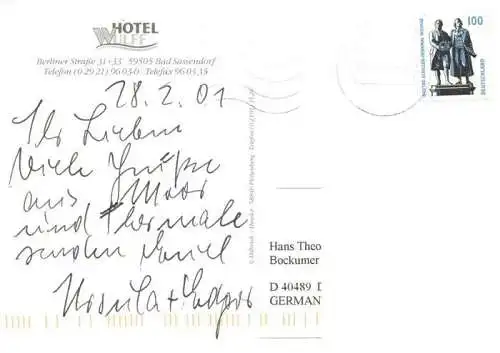 HOTEL
WULFF
Berliner Straße 31+33 59505 Bad Sassendorf
Telefon (0 29 21) 9603-0 Telefax 9603 35
28.2.01
Ihr Lieben
Viele Grüße
aus Moor
und Thermale
senden
Ursula + Edgar
100
DEUTSCHLAND
Hans Theo
Bockumer
D 40489 D
GERMAN